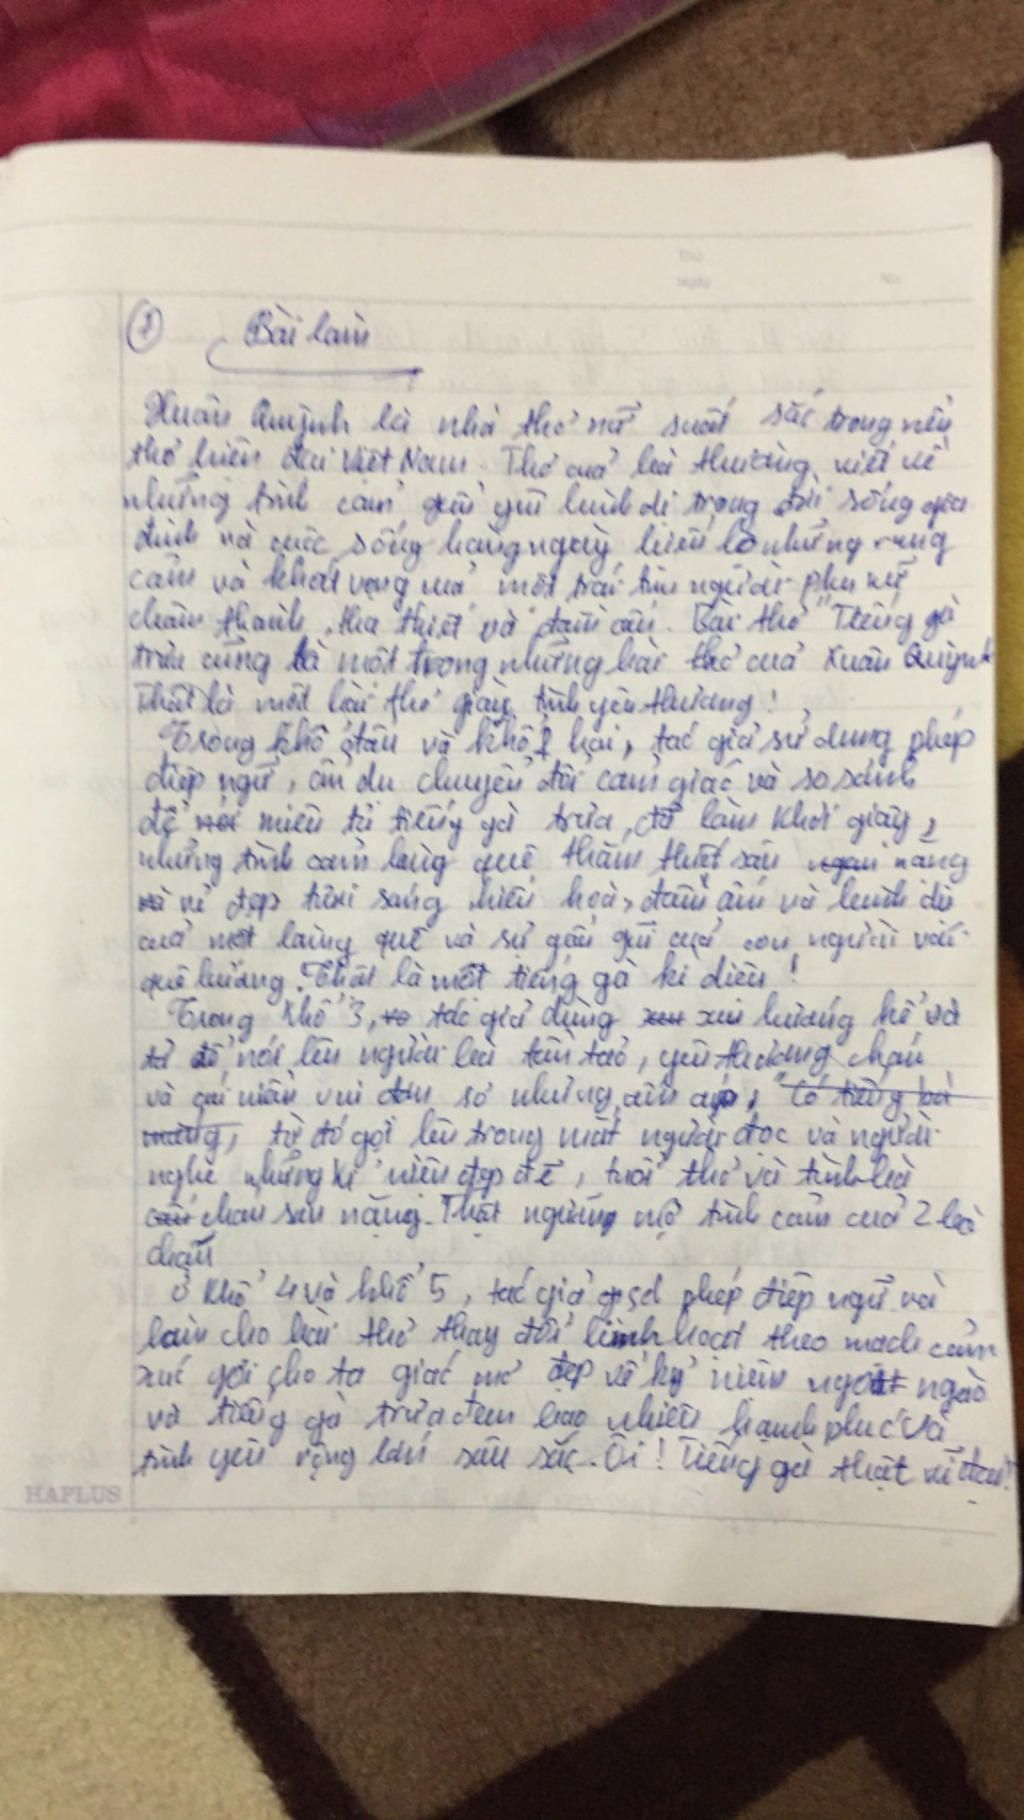 ① Bài làm
Xuân Quỳnh là nhà thơ nữ xuất sắc trong nền
thơ hiện đại Việt Nam. Thơ của bà thường viết về
những tình cảm gần gũi bình dị trong đời sống gia
đình và cuộc sống hàng ngày biểu lộ những rung
cảm và khát vọng của một trái tim người phụ nữ
chân thành, tha thiết và đằm thắm. Bài thơ "Tiếng gà
trưa cũng là một trong những bài thơ của Xuân Quỳnh
Thật là một bài thơ giàu tình yêu thương!
Trong khổ đầu và khổ hai, tác giả sử dụng phép
điệp ngữ, ẩn dụ chuyển đổi cảm giác và so sánh
để miêu tả tiếng gà trưa, đã làm khơi giậy
những tình cảm làng quê thắm thiết sâu nặng
vẻ đẹp tươi sáng hiền hoà, đầm ấm và bình dị
của một làng quê và sự gắn gũi của con người với
quê hương. Thật là một tiếng gà kì diệu!
Trong khổ 3, tác giả dùng xưng hô và
từ để nói lên người bà tần tảo, yêu thương cháu
và niềm vui đơn sơ nhưng ấm áp, "Có tiếng bà
mắng, từ đó gợi lên trong mắt người đọc và người
nghe những kỉ niệm đẹp đẽ, tuổi thơ và tình bà
cháu sâu nặng. Thật ngưỡng mộ tình cảm của 2 bà
cháu
Ở khổ 4 và khổ 5, tác giả sd phép điệp ngữ và
làm cho bài thơ thay đổi linh hoạt theo mạch cảm
xúc gợi cho ta giấc mơ đẹp về kỷ niệm ngọt ngào
và tiếng gà trưa đem bao nhiêu hạnh phúc và
tình yêu rộng lớn sâu sắc. Ôi! Tiếng gà thật vĩ đại!
HAPLUS